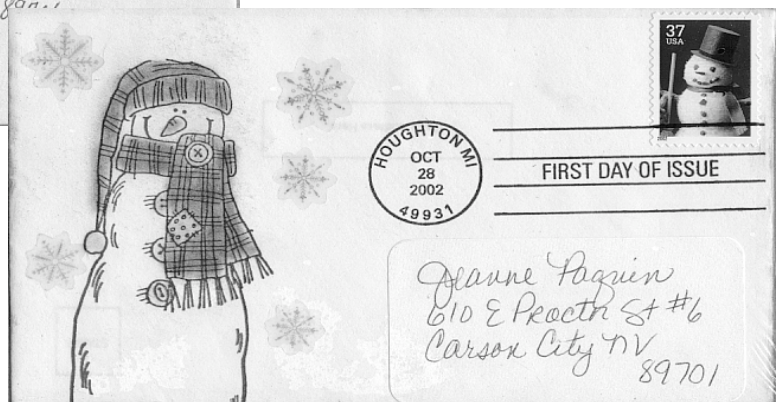 37
USA
HOUGHTON MI
OCT
28
2002
49931
FIRST DAY OF ISSUE
Jeanne Paquin
610 E Proctor St #6
Carson City NV
89701